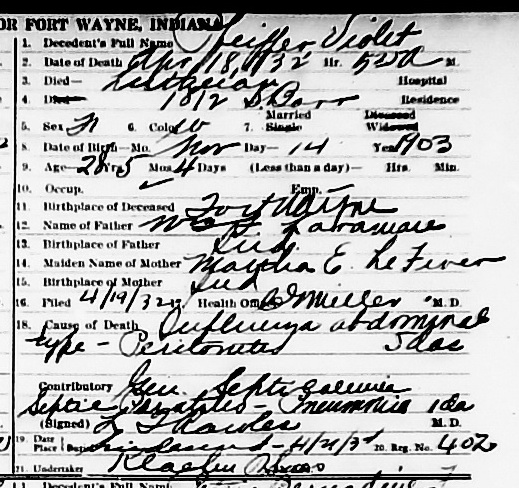 OR FORT WAYNE, INDIANA
1. Decedent's Full Name Pfeiffer Violet
2. Date of Death Apr 18, 1932 Hr. 520 A M.
3. Died— Lutheran Hospital
4. Died— 1812 S Barr Residence
Married Diseased
5. Sex F 6. Color W 7. Single Widowed
8. Date of Birth—Mo. Nov Day— 14 Year 1903
9. Age— 28 Yrs 5 Mos. 4 Days (Less than a day)— Hrs. Min.
10. Occup. Emp.
11. Birthplace of Deceased Fort Wayne
12. Name of Father Laramore
13. Birthplace of Father Ind.
14. Maiden Name of Mother Martha E. LeFever
15. Birthplace of Mother Ind
16. Filed 4/19/32 17. Health Officer Miller M. D.
18. Cause of Death Influenza abdominal
type - Peritonitis 5 das
Contributory Gen. Septicaemia
Septic - Pneumonia 1 da
(Signed) M. D.
19. Date Place Burial Lindenwood - 4/21/32 20. Reg. No. 402
21. Undertaker Klaehn
1. Decedent's Full Name